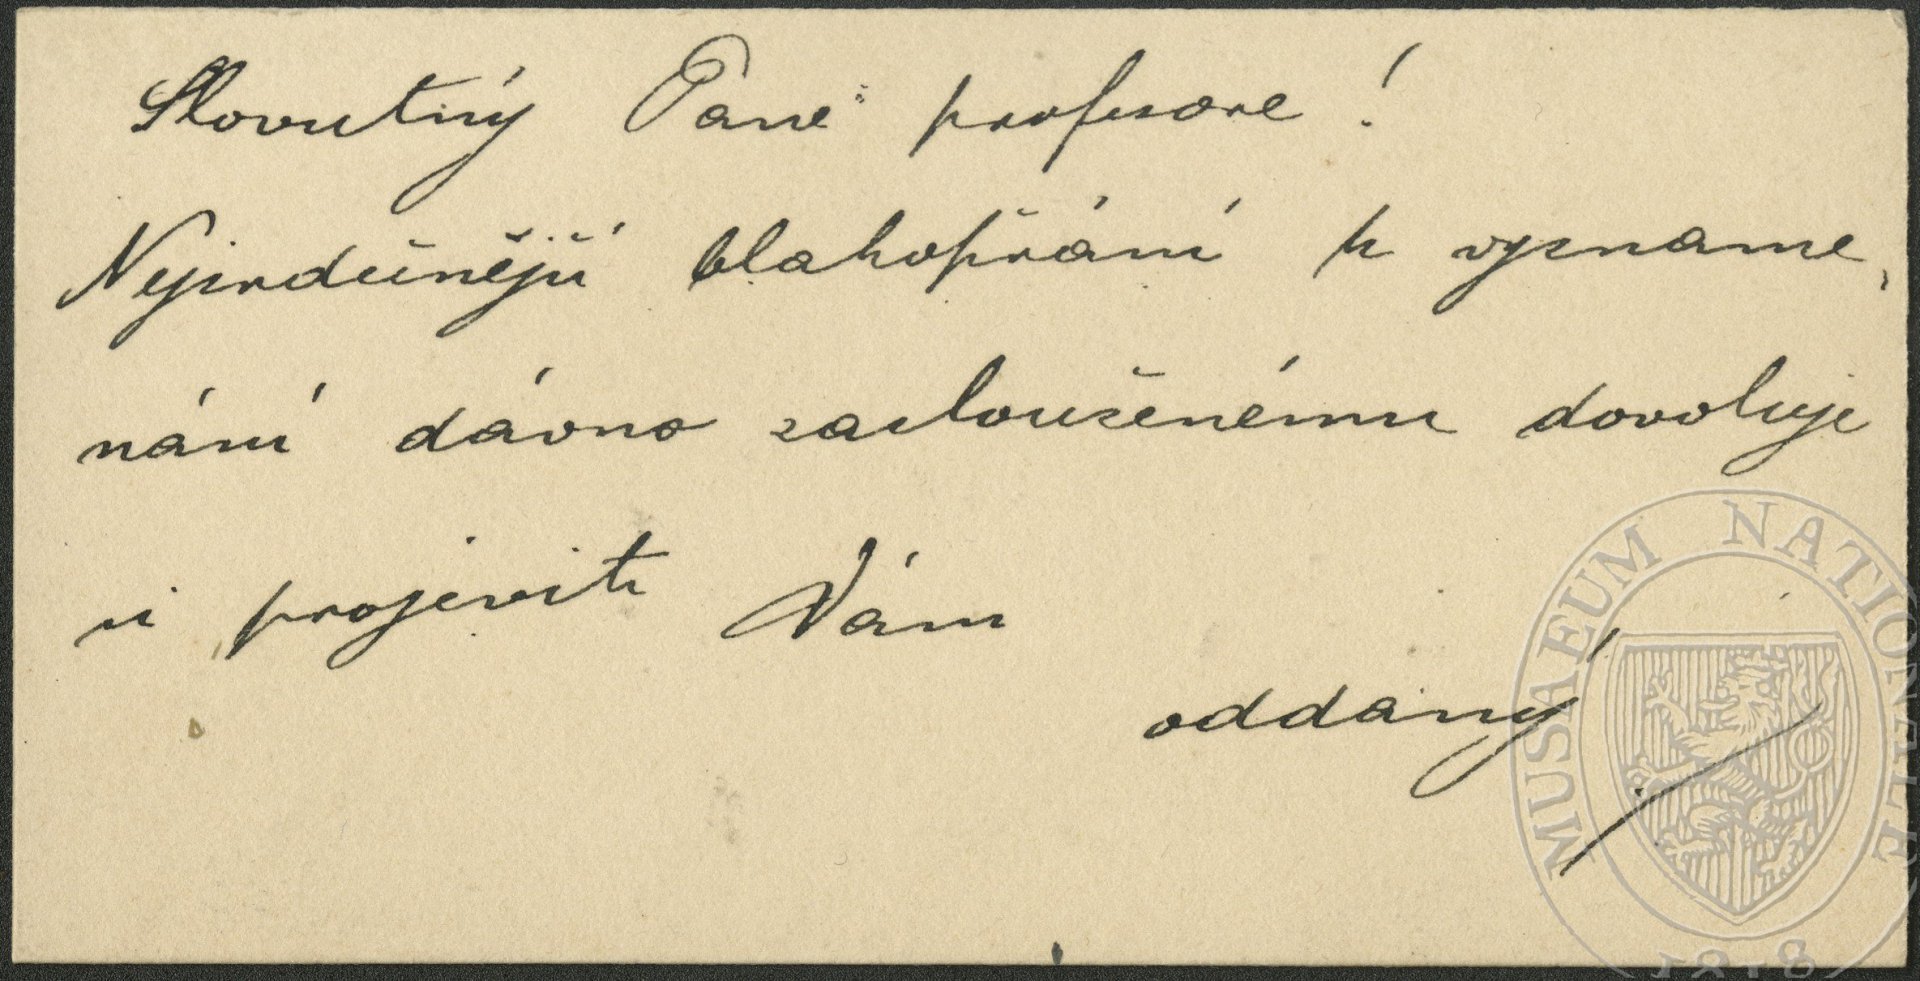 Slovutný Pane profesore!
Nejsrdečnější blahopřání k vyzname-
nání dávno zaslouženému dovoluje
si projeviti Vám
oddaný
MUSAEUM NATIONALE
1818